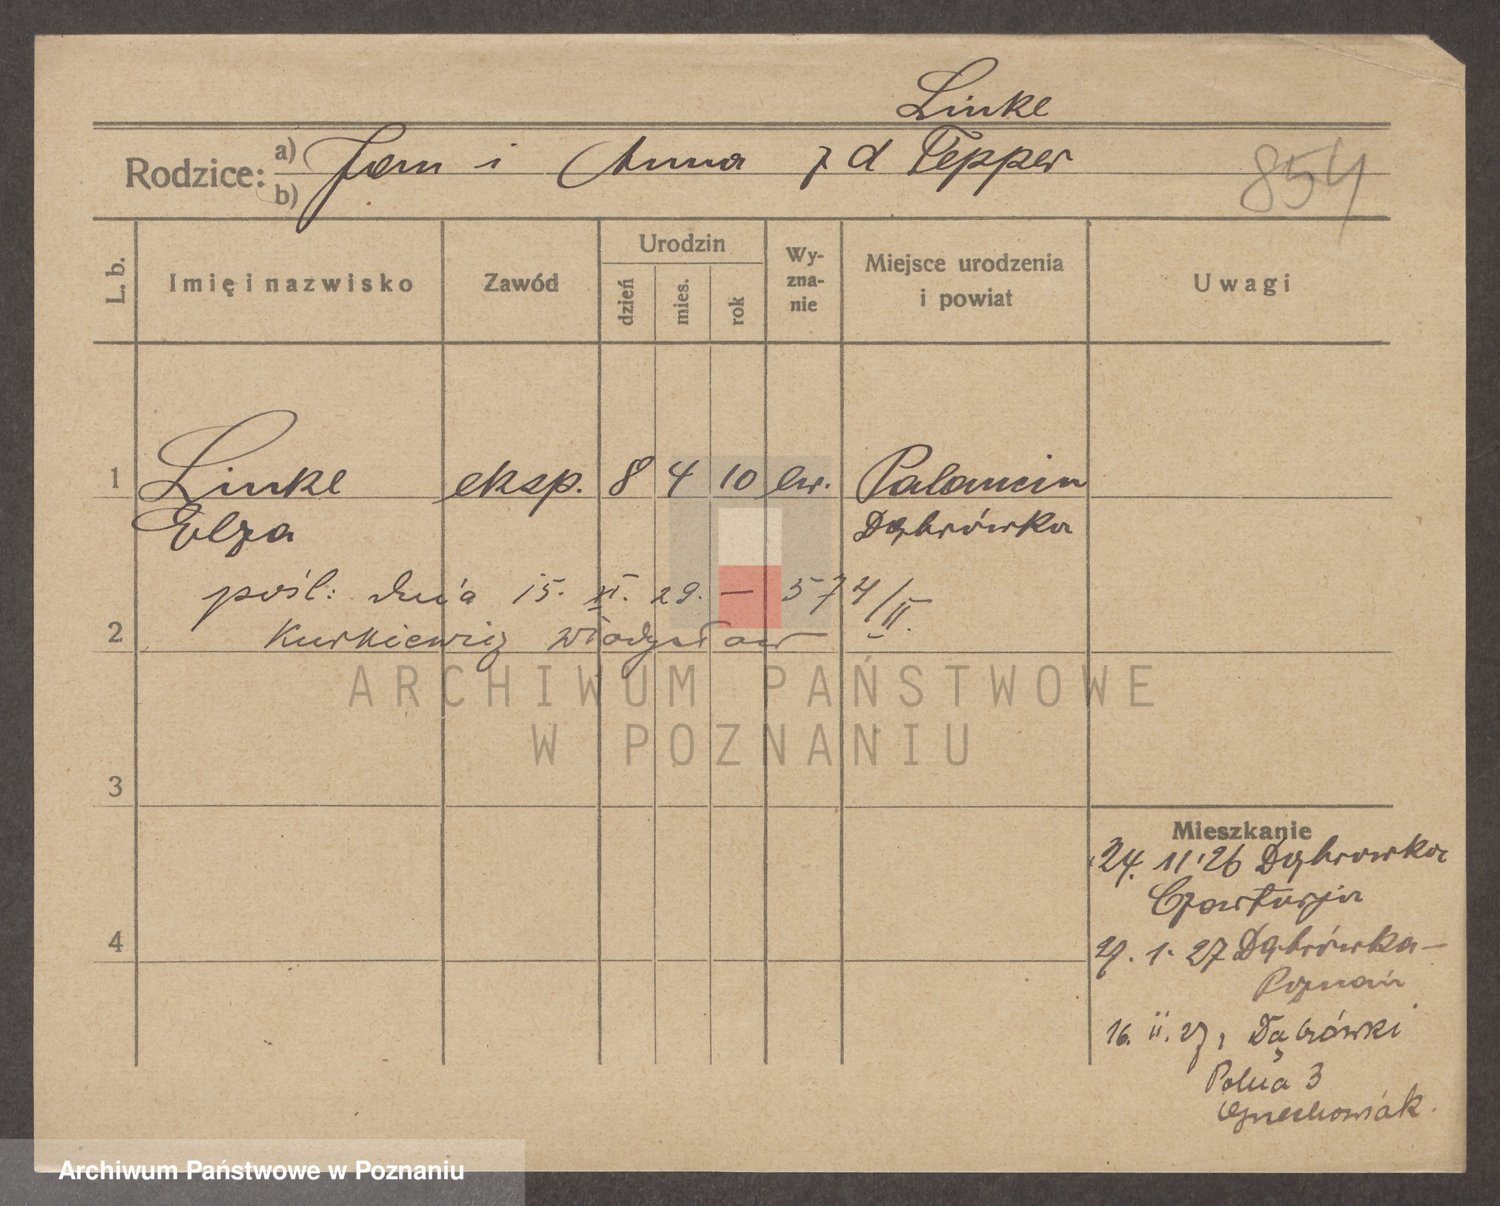 Linke
Rodzice: a) Jan i Anna z d Tepper
b)
854
L. b. Imię i nazwisko Zawód Urodzin dzień mies. rok Wy-zna-nie Miejsce urodzenia i powiat Uwagi
1 Linke eksp. 8 4 10 ew.
Elza Dąbrówka
pośl: dnia 15. XI. 29. — 574/II.
2 Kurkiewicz Władysław
ARCHIWUM PAŃSTWOWE
W POZNANIU
3
Mieszkanie
24. 11. 26 Dąbrowka
4
29. 1. 27 Dąbrówka —
Poznań
16. II. 27, Dąbrówki
Polna 3
Archiwum Państwowe w Poznaniu